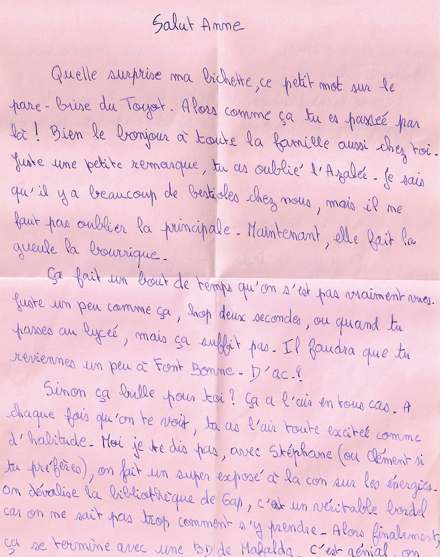 Salut Anne
Quelle surprise ma bichette, ce petit mot sur le
pare-brise du Toyot. Alors comme ça tu es passée par
là ! Bien le bonjour à toute la famille aussi chez toi.
Juste une petite remarque, tu as oublié l'Azalée. Je sais
qu'il y a beaucoup de bestioles chez nous, mais il ne
faut pas oublier la principale. Maintenant, elle fait la
gueule la bourrique.
Ça fait un bout de temps qu'on s'est pas vraiment vues.
Juste un peu comme ça, hop deux secondes, ou quand tu
passes au lycée, mais ça suffit pas. Il faudra que tu
reviennes un peu à Font Bonne. D'ac. ?
Sinon ça bulle pour toi ? Ça a l'air en tous cas. A
chaque fois qu'on te voit, tu as l'air toute excitée comme
d'habitude. Moi je te dis pas, avec Stéphane (ou clément si
tu préfères), on fait un super exposé à la con sur les énergies.
On dévalise la bibliothèque de Gap, c'est un véritable bordel
car on ne sait pas trop comment s'y prendre. Alors finalement
ça se termine avec une BD de Mafalda. C'est génial, on